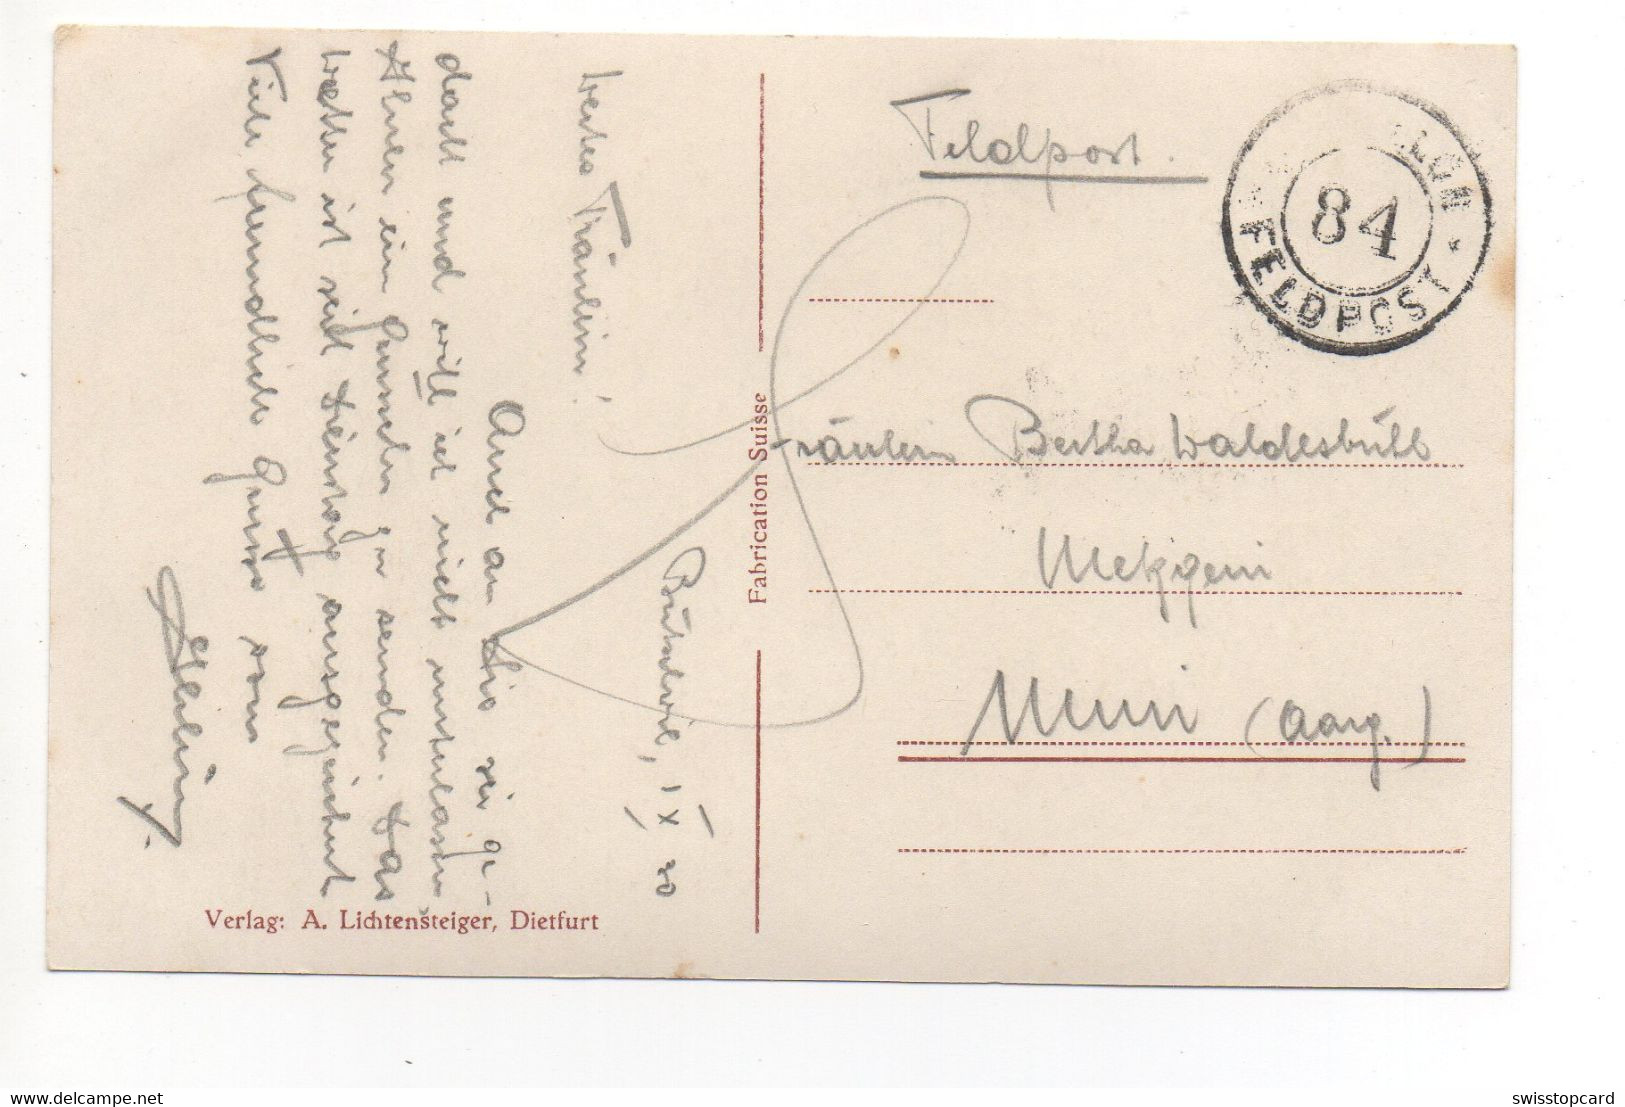 Feldpost.
84
FELDPOST
Fräulein Bertha Waldesbühl
Metzgerei
Muri (Aarg.)
Fabrication Suisse
Bütschwil, IX 30
Wertes Fräulein!
Auch an Sie sei ge-
dacht und will ich nicht unterlassen
Ihnen ein zu senden. Das
Wetter ist seit Dienstag ausgezeichnet
Viele freundliche Grüsse vom
Verlag: A. Lichtensteiger, Dietfurt
For sale on www.delcampe.net
swisstopcard